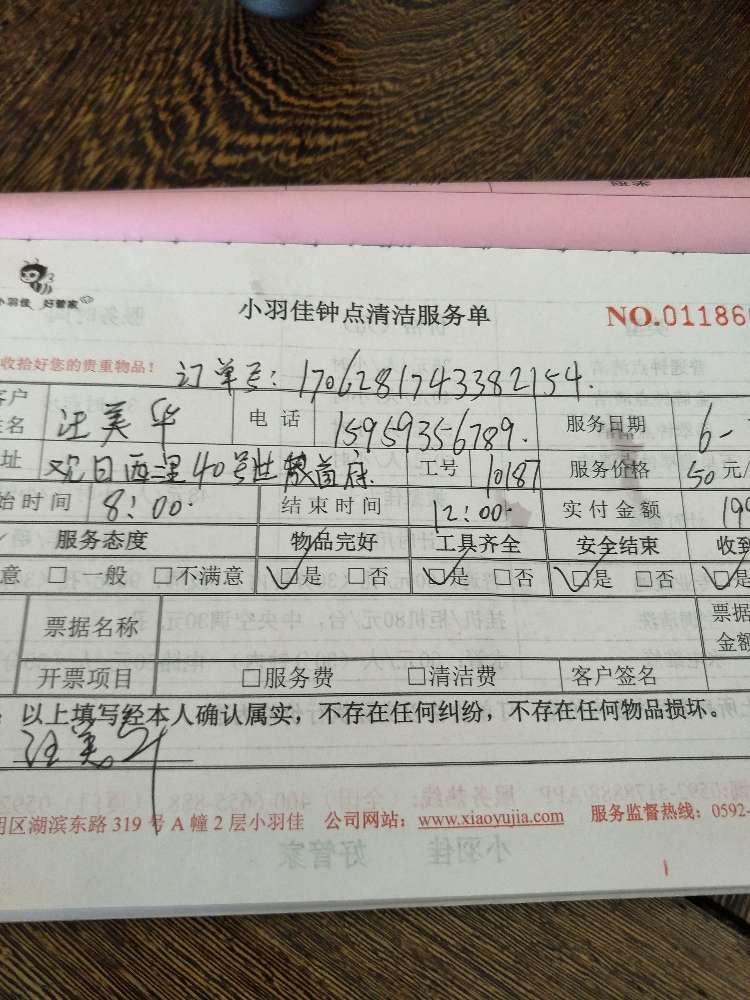 小羽佳 好管家
小羽佳钟点清洁服务单 NO.01186
收拾好您的贵重物品! 订单号: 1706281743382154.
客户姓名 汪美华 电 话 15959356789. 服务日期 6-
址 观日西里40号 工号 10187 服务价格 50元/
始时间 8:00. 结束时间 12:00. 实付金额 199
服务态度 物品完好 工具齐全 安全结束 收到
意 □一般 □不满意 □是 □否 □是 □否 □是 □否 □是
票据名称 票据金额
开票项目 □服务费 □清洁费 客户签名
以上填写经本人确认属实，不存在任何纠纷，不存在任何物品损坏。
汪美华
明区湖滨东路 319 号 A 幢 2 层小羽佳 公司网站: www.xiaoyujia.com 服务监督热线: 0592-